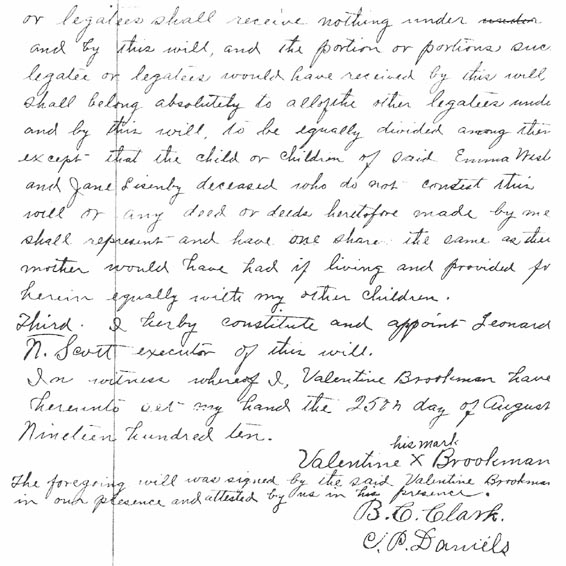 or legatees shall receive nothing under
and by this will, and the portion or portions suc
legatee or legatees would have received by this will
shall belong absolutely to all of the other legatees unde
and by this will, to be equally divided among them
except that the child or children of said Emma West
and Jane Eisenby deceased who do not contest this
will or any deed or deeds heretofore made by me
shall represent and have one share the same as their
mother would have had if living and provided fo
herein equally with my other children.
Third. I herby constitute and appoint Leonard
N. Scott executor of this will.
In witness whereof I, Valentine Brookman have
hereunto set my hand the 25th day of August
Nineteen hundred ten.
his mark
Valentine X Brookman
The foregoing will was signed by the said Valentine Brookman
in our presence and attested by us in his presence.
B. C. Clark.
C. P. Daniels